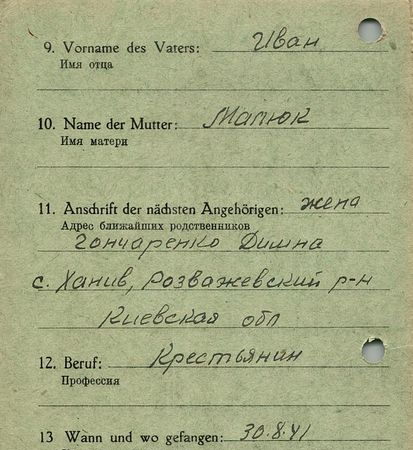 9. Vorname des Vaters: Иван
Имя отца
10. Name der Mutter: Матюк
Имя матери
11. Anschrift der nächsten Angehörigen: жена
Адрес ближайших родственников
Гончаренко Димна
с. Ханив, Розважевский р-н
Киевская обл
12. Beruf: Крестьянин
Профессия
13 Wann und wo gefangen: 30.8.41